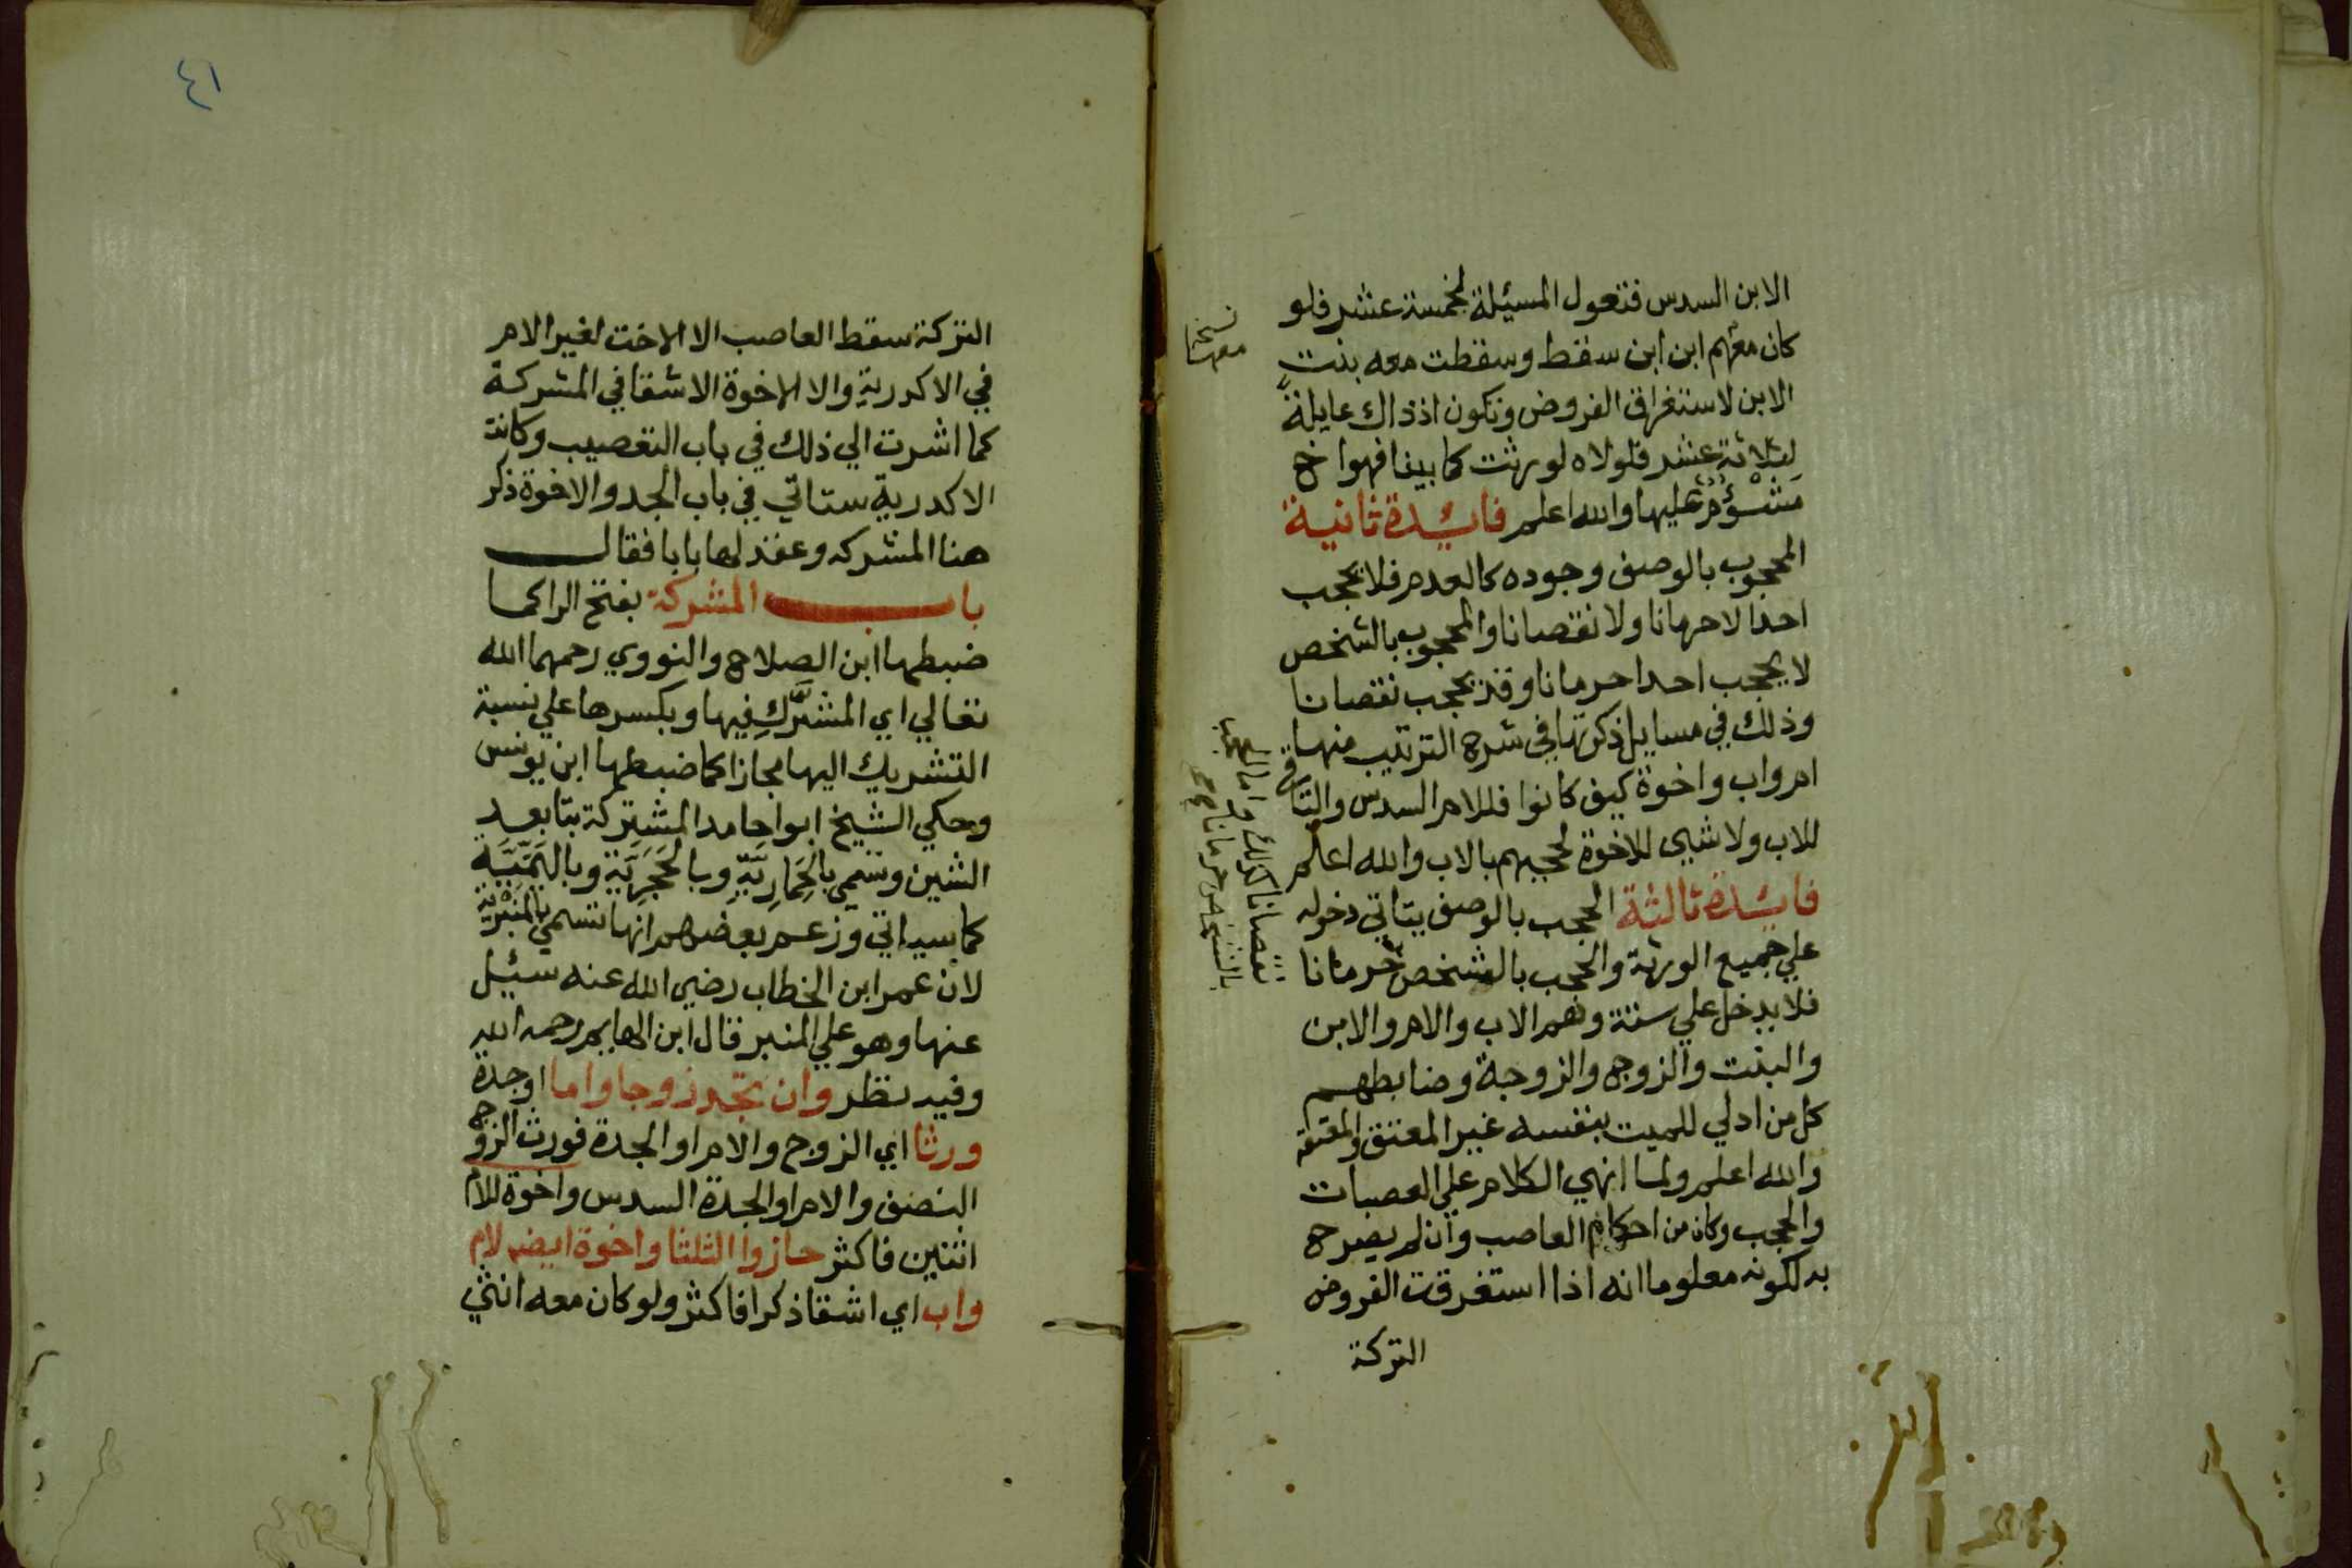 الابن السدس فتعول المسئلة لخمسة عشر فلو
كان معهم ابن ابن سقط وسقطت معه بنت
الابن لاستغراق الفروض وتكون اذ ذاك عايلة
لثلاثة عشر فلولاه لورثت كما بينا فهوا خ
مَشْؤُم عليها والله اعلم فائدة ثانية
المحجوب بالوصف وجوده كالعدم فلا يحجب
احدا لا حرمانا ولا نقصانا والمحجوب بالشخص
لا يحجب احدا حرمانا وقد يحجب نقصانا
وذلك في مسايل ذكرتها في شرح الترتيب منها
ام واب واخوة كيف كانوا فللام السدس والباقي
للاب ولا شيى للاخوة لحجبهم بالاب والله اعلم
فائدة ثالثة الحجب بالوصف يتاتي دخوله
علي جميع الورثة والحجب بالشخص حرمانا
فلا يدخل علي ستة وهم الاب والام والابن
والبنت والزوج والزوجة وضابطهم
كل من ادلي للميت بنفسه غير المعتق والمعتقة
والله اعلم ولما انهي الكلام علي العصبات
والحجب وكان من احكام العاصب وان لم يصرح
به لكونه معلوما انه اذا استغرقت الفروض
التركة
نسخة
معهما
نقصانا كذلك واما المحجوب
بالشخص حرمانا
٤١
التركة سقط العاصب الا الاخت لغير الام
في الاكدرية والا الاخوة الاشقا في المشركة
كما اشرت الي ذلك في باب التعصيب وكانت
الاكدرية ستاتي في باب الجد والاخوة ذكر
هنا المشركه وعقد لها بابا فقال
باب المشركة بفتح الرا كما
ضبطها ابن الصلاح والنووي رحمهما الله
تعالي اي المشرَّك فيها وبكسرها علي نسبة
التشريك اليها مجازا كما ضبطها ابن يونس
وحكي الشيخ ابوا حامد المشتركة بتا بعد
الشين وتسمي بالحِمَارِيَّةِ وبالحَجَرِيَّةِ وباليَمِّيَّة
كما سياتي وزعم بعضهم انها تسمي بالمنبرية
لان عمر ابن الخطاب رضي الله عنه سئيل
عنها وهو علي المنبر قال ابن الهايم رحمه الله
وفيه نظر وان تجد زوجا واما اوجدة
ورثا اي الزوج والام او الجدة فورث الزوج
النصف والام او الجدة السدس واخوة للام
اثنين فاكثر حازوا الثلثا واخوة ايضا لام
واب اي اشقا ذكرا فاكثر ولو كان معه انثي